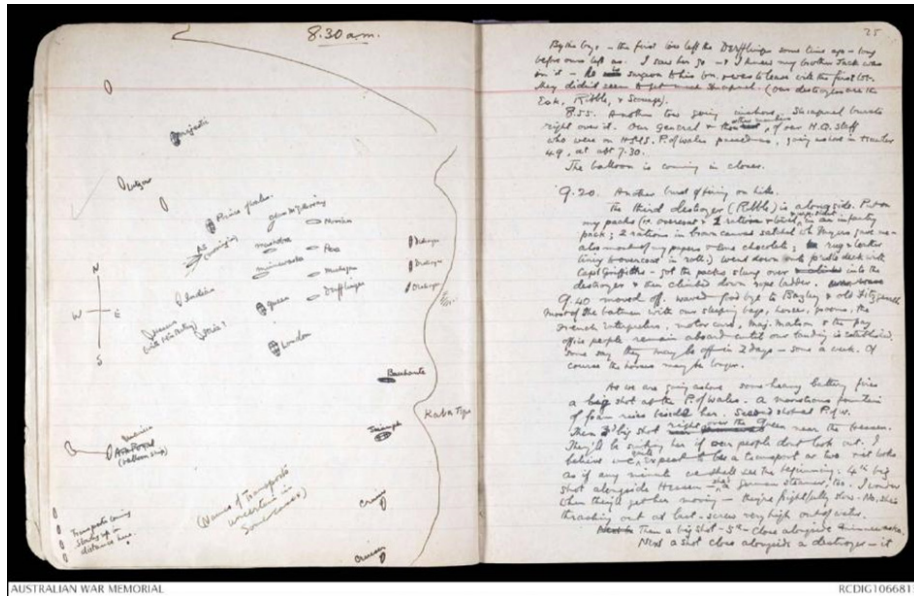 8.30 a.m.
Majestic
Prince of Wales
N
W
E
S
Minnewaska
Hessian
Queen
Derfflinger
London
Bacchante
Kaba Tepe
Triumph
(balloon ship)
(Names of transports
uncertain in
some cases)
Transports coming
slowly up in
distance here.
Cruiser
25
By the bye - the first tow left the Derfflinger some time ago - long
before ours left us. I saw her go - & I knew my brother Jack was
on it - he is surgeon to his bn. & was to leave with the first lot.
They didn't seem to get much shrapnel. (Our destroyers are the
Esk, Ribble, & Scourge).
8.55. Another tow going inshore. Shrapnel bursts
right over it. Our General & the other members of our H.Q. Staff
who were on HMS. P. of Wales
49, at abt 7.30.
The balloon is coming in closer.
9.20. Another burst of firing on hills.
The third destroyer (Ribble) is alongside. Put on
my packs
pack; 2 rations in brown canvas satchel
also most of my papers & some chocolate;
went down onto deck with
Capt Griffiths - got the packs slung over into the
destroyer & then climbed down rope ladder.
9.40 moved off. Waved good bye to Bazley & old Fitzgerald
Most of the batmen with our sleeping bags, horses, grooms, the
French interpreters, motor cars, & the pay
office people remain aboard until our landing is established.
Some say they may be off in 2 days - some a week. Of
course the horses may be longer.
As we are going ashore some heavy battery fires
a big shot at the P. of Wales. A monstrous fountain
of foam rises beside her. Second shot at P. of W.
Then 3rd big shot right over the Queen near the
They'll be sinking her if our people dont look out. I
believe we expect to lose a transport or two. It looks
as if any minute we shall see the beginning. 4th big
shot alongside Hessen - a German steamer, too. I wonder
when they'll get her moving - they're frightfully slow - No, she's
thrashing out at last - screw very high out of water.
Then a big shot - 5th - close alongside Minnewaska.
Next a shot close alongside a destroyer - it
AUSTRALIAN WAR MEMORIAL
RCDIG106681